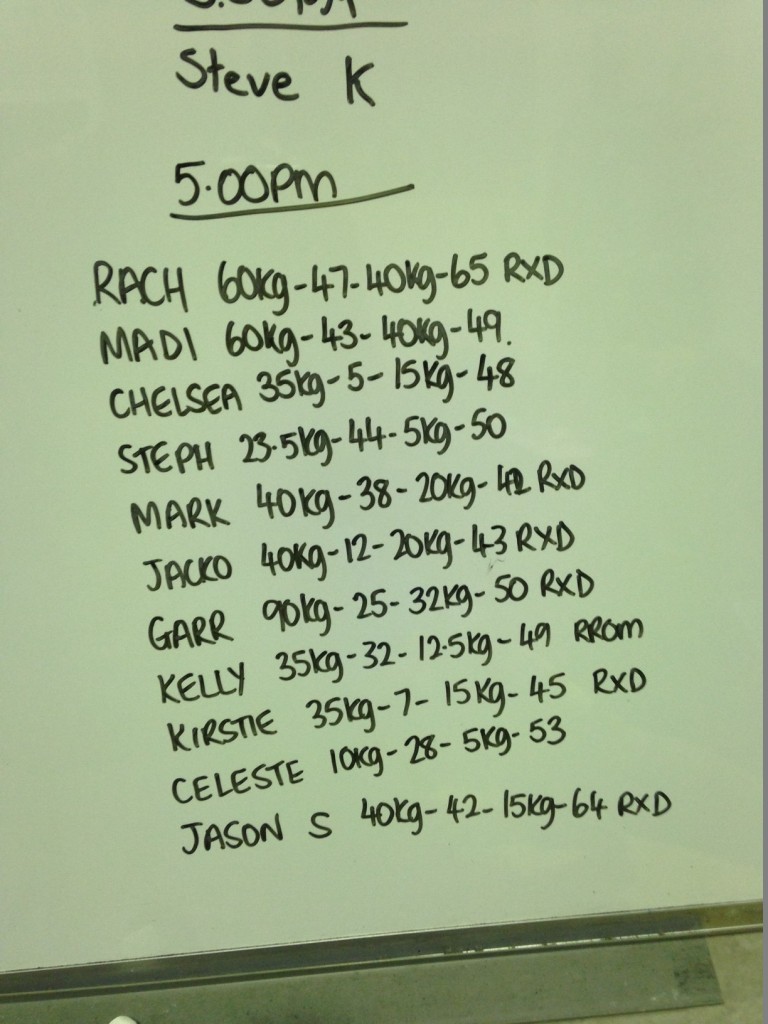 Steve K
5.00pm
RACH 60kg-47-40kg-65 RXD
MADI 60kg-43-40kg-49.
CHELSEA 35kg-5-15kg-48
STEPH 23.5kg-44-5kg-50
MARK 40kg-38-20kg-42 RXD
JACKO 40kg-12-20kg-43 RXD
GARR 90kg-25-32kg-50 RXD
KELLY 35kg-32-12.5kg-49 RROM
KIRSTIE 35kg-7-15kg-45 RXD
CELESTE 10kg-28-5kg-53
JASON S 40kg-42-15kg-64 RXD